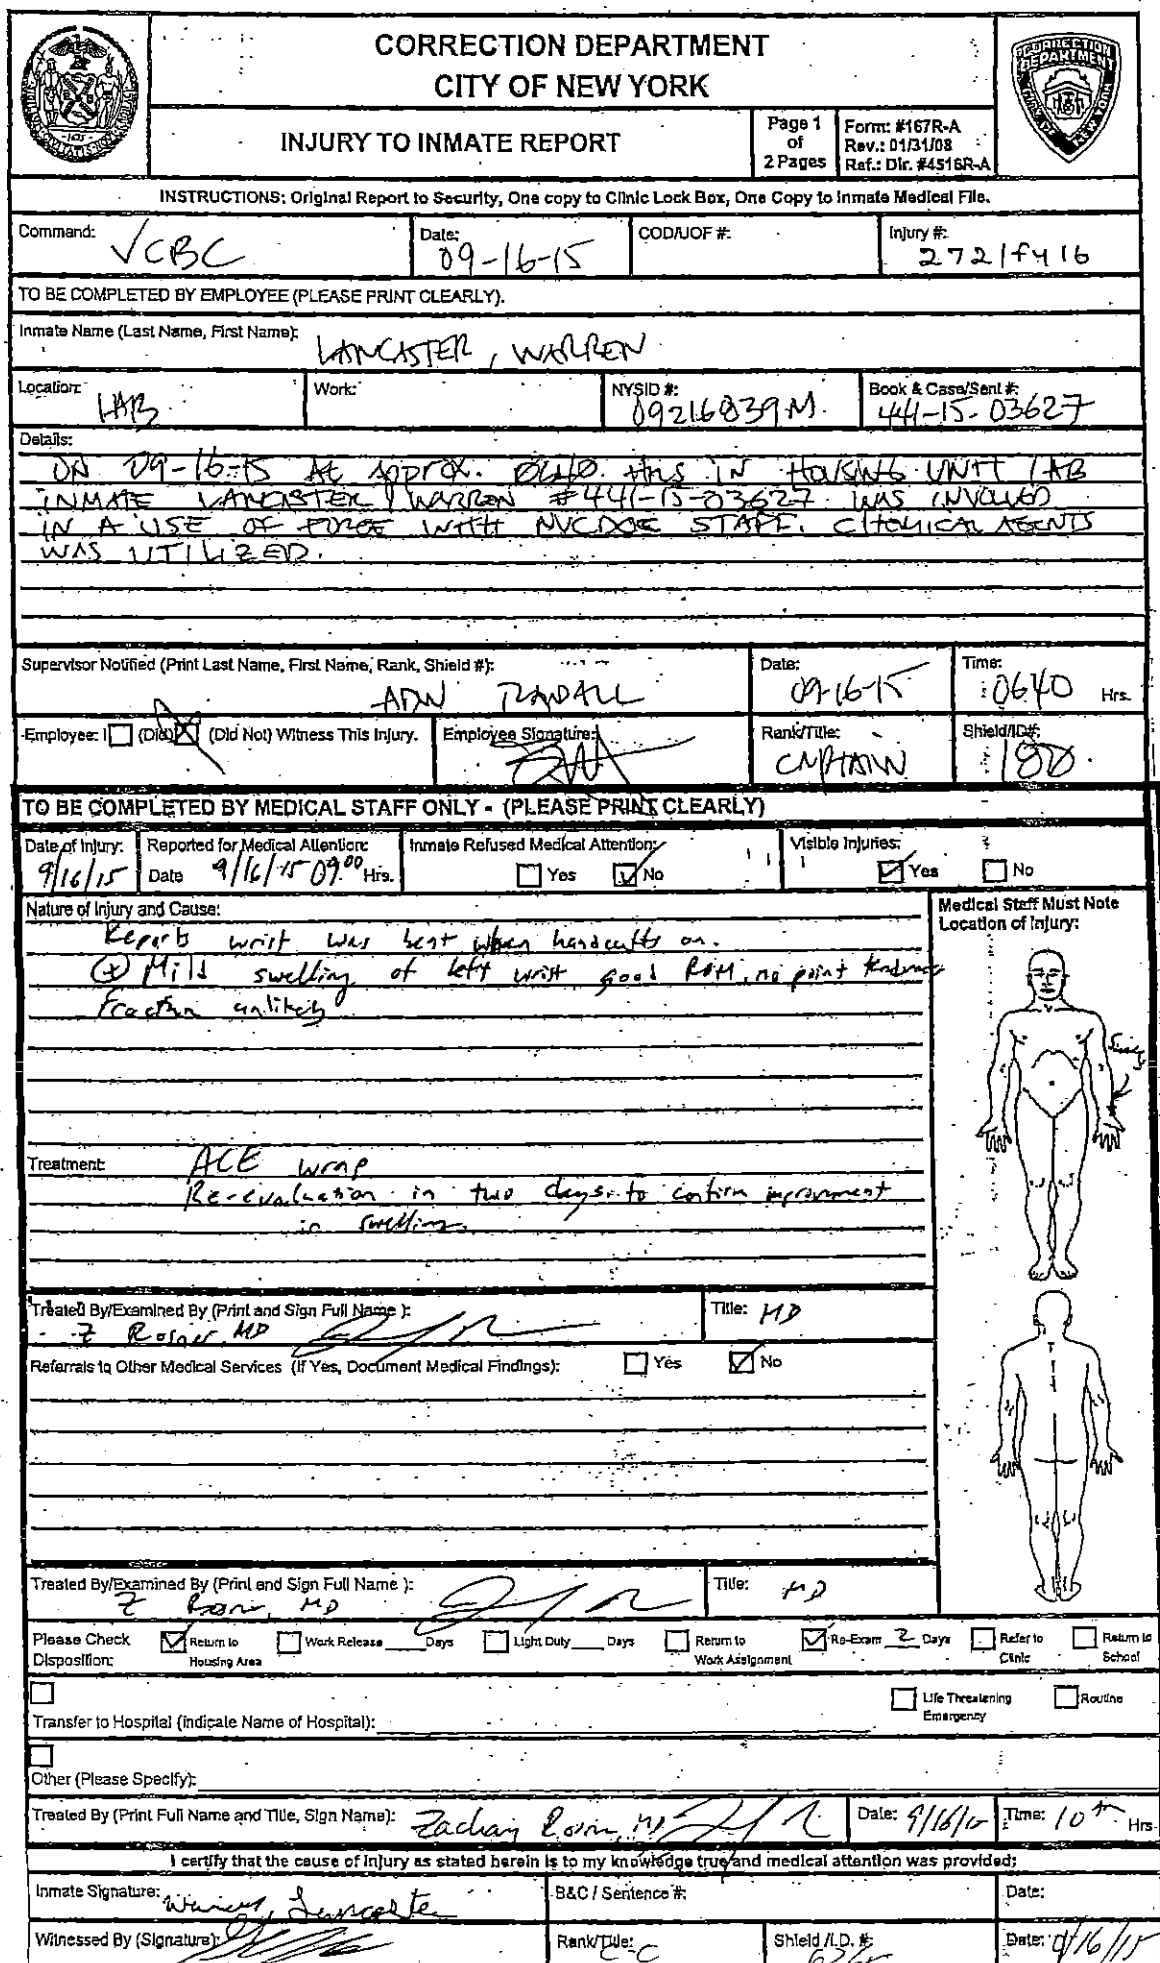 CORRECTION DEPARTMENT
CITY OF NEW YORK
INJURY TO INMATE REPORT
Page 1
of
2 Pages
Form: #167R-A
Rev.: 01/31/08
Ref.: Dir. #4516R-A
INSTRUCTIONS: Original Report to Security, One copy to Clinic Lock Box, One Copy to Inmate Medical File.
Command: VCBC
Date: 09-16-15
COD/UOF #:
Injury #: 272/fy16
TO BE COMPLETED BY EMPLOYEE (PLEASE PRINT CLEARLY).
Inmate Name (Last Name, First Name): LANCASTER, WARREN
Location: 1AB
Work:
NYSID #: 09216839M
Book & Case/Sent #: 441-15-03627
Details:
ON 09-16-15 At Approx. 0640 Hrs IN HOUSING UNIT 1AB
INMATE LANCASTER, WARREN #441-15-03627 WAS INVOLVED
IN A USE OF FORCE WITH NYCDOC STAFF. CHEMICAL AGENTS
WAS UTILIZED.
Supervisor Notified (Print Last Name, First Name, Rank, Shield #):
ADW RANDALL
Date: 09-16-15
Time: 0640 Hrs.
Employee: I (Did) (Did Not) Witness This Injury.
Employee Signature:
Rank/Title: CAPTAIN
Shield/ID#: 180
TO BE COMPLETED BY MEDICAL STAFF ONLY - (PLEASE PRINT CLEARLY)
Date of Injury: 9/16/15
Reported for Medical Attention:
Date 9/16/15 09:00 Hrs.
Inmate Refused Medical Attention:
Yes No
Visible Injuries:
Yes No
Nature of Injury and Cause:
Reports wrist was bent when handcuffs on.
(+) Mild swelling of left wrist good ROM, no point tenderness
Fracture unlikely
Medical Staff Must Note
Location of Injury:
Treatment: ACE wrap
Re-evaluation in two days to confirm improvement
in swelling.
Treated By/Examined By (Print and Sign Full Name ):
Z Rosner MD
Title: MD
Referrals to Other Medical Services (If Yes, Document Medical Findings): Yes No
Treated By/Examined By (Print and Sign Full Name ):
Z Rosner, MD
Title: MD
Please Check
Disposition:
Return to
Housing Area
Work Release ____ Days
Light Duty ____ Days
Return to
Work Assignment
Re-Exam 2 Days
Refer to
Clinic
Return to
School
Life Threatening
Emergency
Routine
Transfer to Hospital (Indicate Name of Hospital):
Other (Please Specify):
Treated By (Print Full Name and Title, Sign Name): Zachary Rosner, MD
Date: 9/16/15
Time: 10 Hrs.
I certify that the cause of injury as stated herein is to my knowledge true and medical attention was provided:
Inmate Signature: Warren, Lancaster
B&C / Sentence #:
Date:
Witnessed By (Signature):
Rank/Title:
Shield /I.D. #:
Date: 9/16/15